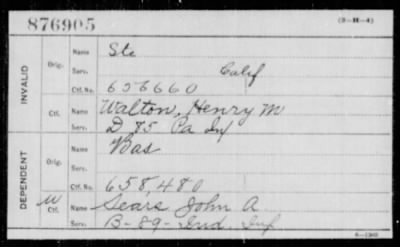 876905 (3-H-4)
INVALID
Orig. Name Stc
Serv. Calif
Ctf. No. 656660
Ctf. Name Walton, Henry M
Serv. D 85 Pa Inf
DEPENDENT
Orig. Name Bas
Serv.
Ctf. No. 658,480
W
Ctf. Name Sears John A
Serv. B-89-Ind. Inf